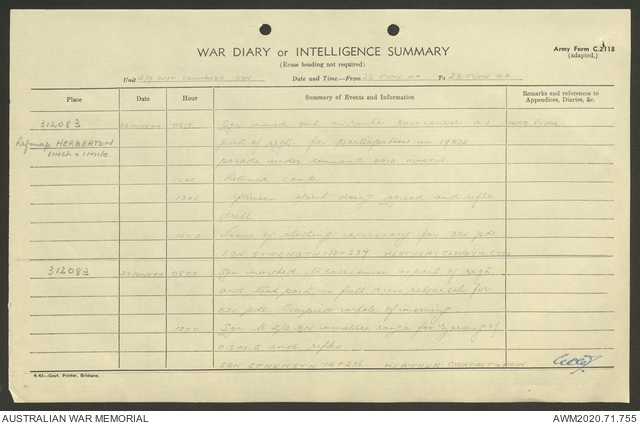 WAR DIARY or INTELLIGENCE SUMMARY
(Erase heading not required)
Army Form C.2118
(adapted.)
Unit 2/9 AUST COMMANDO SQN. Date and Time—From 22 JUNE 44 To 23 JUNE 44
Place Date Hour Summary of Events and Information Remarks and references to Appendices, Diaries, &c.
312083 22 JUNE 44 0815 Sqn moved out en route racecourse as
Ref map HERBERTON part of regt. for participation in
1 inch = 1 mile parade under command BRIG MARTIN.
Returned camp.
1345 Afternoon spent doing squad and rifle
drill
1600 Issue of clothing necessary for
SQN STRENGTH WEATHER: CLOUDY & COOL
312083 23 JUNE 44 0800 Sqn marched to racecourse as part of regt
and took part in full dress rehearsal for
pde. Occupied whole of morning.
Sqn to miniature range for grouping
and rifle.
SQN STRENGTH WEATHER: OVERCAST & RAIN
4-43—Govt. Printer, Brisbane.
AUSTRALIAN WAR MEMORIAL AWM2020.71.755